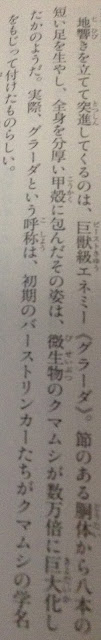 地響きを立てて突進してくるのは、巨獣級エネミー《グラーダ》。節のある胴体から八本の
短い足を生やし、全身を分厚い甲殻に包んだその姿は、微生物のクマムシが数万倍に巨大化し
たかのようだ。実際、グラーダという呼称は、初期のバーストリンカーたちがクマムシの学名
をもじって付けたものらしい。